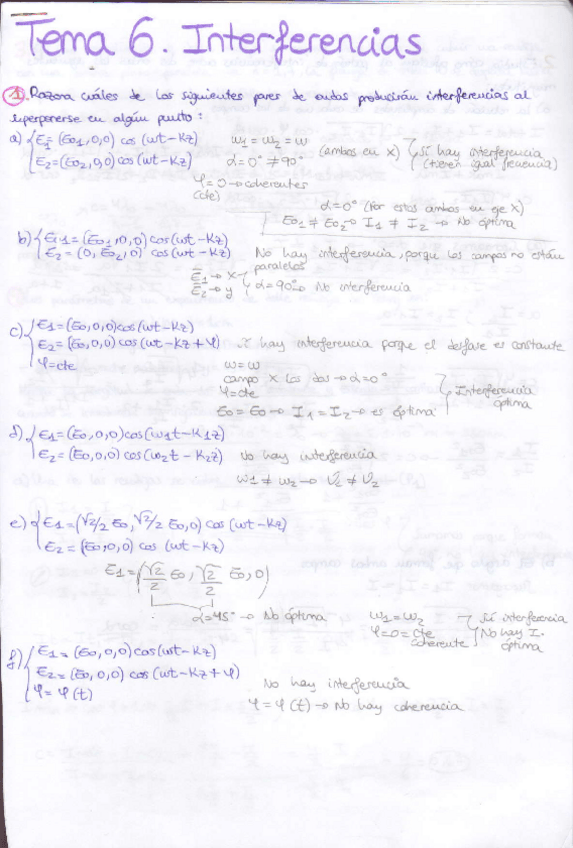 Tema 6. Interferencias
1. Razona cuáles de los siguientes pares de ondas producirán interferencias al
superponerse en algún punto:
a) { E1=(E01,0,0) cos (wt-Kz)
E2=(E02,0,0) cos (wt-Kz)
w1 = w2 = w
α=0° ≠ 90° (ambos en x)
φ=0 → coherentes
(cte)
Sí hay interferencia
(tienen igual frecuencia)
α=0° (Por estos ambos en eje X)
E01 ≠ E02 → I1 ≠ I2 → No óptima
b) { E1=(E01,0,0) cos(wt-Kz)
E2=(0,E02,0) cos(wt-Kz)
No hay interferencia, porque los campos no están
paralelos
E1 → x
E2 → y } α=90° → No interferencia
c) { E1=(E0,0,0)cos(wt-Kz)
E2=(E0,0,0)cos(wt-Kz+φ)
φ=cte
Sí hay interferencia porque el desfase es constante
w=w
campo X los dos → α=0°
φ=cte
E0=E0 → I1=I2 → es óptima
Interferencia
óptima
d) { E1=(E0,0,0)cos(w1t-K1z)
E2=(E0,0,0)cos(w2t-K2z)
No hay interferencia
w1 ≠ w2 →
e) { E1=(√2/2 E0,√2/2 E0,0) cos (wt-Kz)
E2=(E0,0,0) cos (wt-Kz)
E1=(√2/2 E0, √2/2 E0,0)
α=45° → No óptima
w1=w2
φ=0=cte
coherente
Sí interferencia
No hay I.
óptima
f) { E1=(E0,0,0)cos(wt-Kz)
E2=(E0,0,0)cos(wt-Kz+φ)
φ=φ(t)
No hay interferencia
φ=φ(t) → No hay coherencia